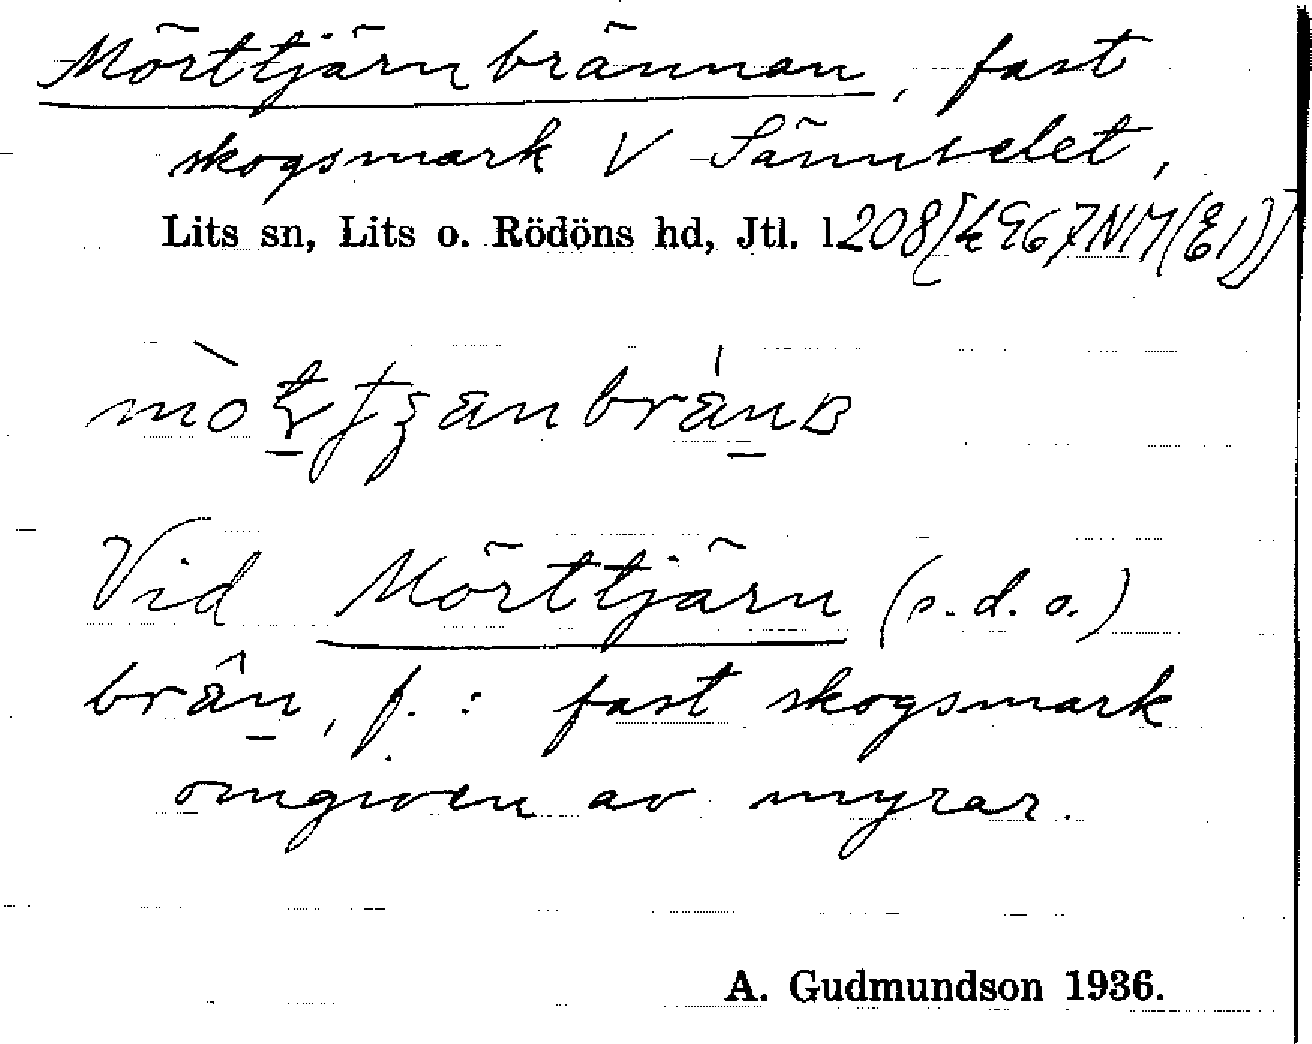 Mörttjärnbrännan, fast
skogsmark V Sännselet,
Lits sn, Lits o. Rödöns hd, Jtl. l.
Vid Mörttjärn (s. d. o.)
brän, f. : fast skogsmark
omgiven av myrar.
A. Gudmundson 1936.